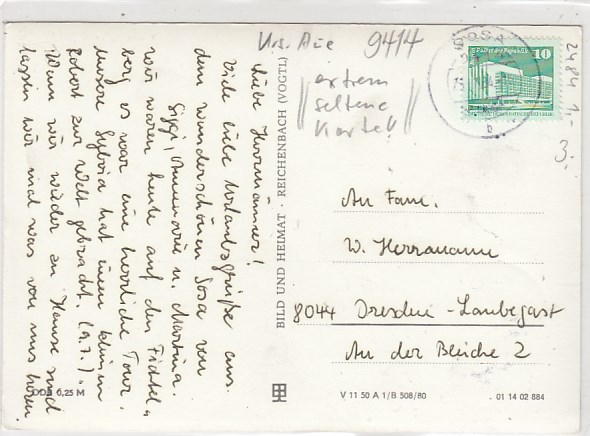 Krs. Aue 9414
extrem
seltene
Karte!!
SOSA
Palast der Republik 10
2484 1,-
3,-
Liebe Herrmänner!
Viele liebe Urlaubsgrüße aus
dem wunderschönen Sosa von
Siggi, Annemarie u. Martina.
Wir waren heute auf dem Fichtel-
berg, es war eine herrliche Tour.
Unsere Sylvia hat einen kleinen
Robert zur Welt gebracht. (9.7.).
Wenn wir wieder zu Hause sind
lassen wir mal was von uns hören
BILD UND HEIMAT · REICHENBACH (VOGTL)
An Fam.
W. Herrmann
8044 Dresden-Laubegast
An der Bleiche 2
DDR 0,25 M
V 11 50 A 1/B 508/80
01 14 02 884